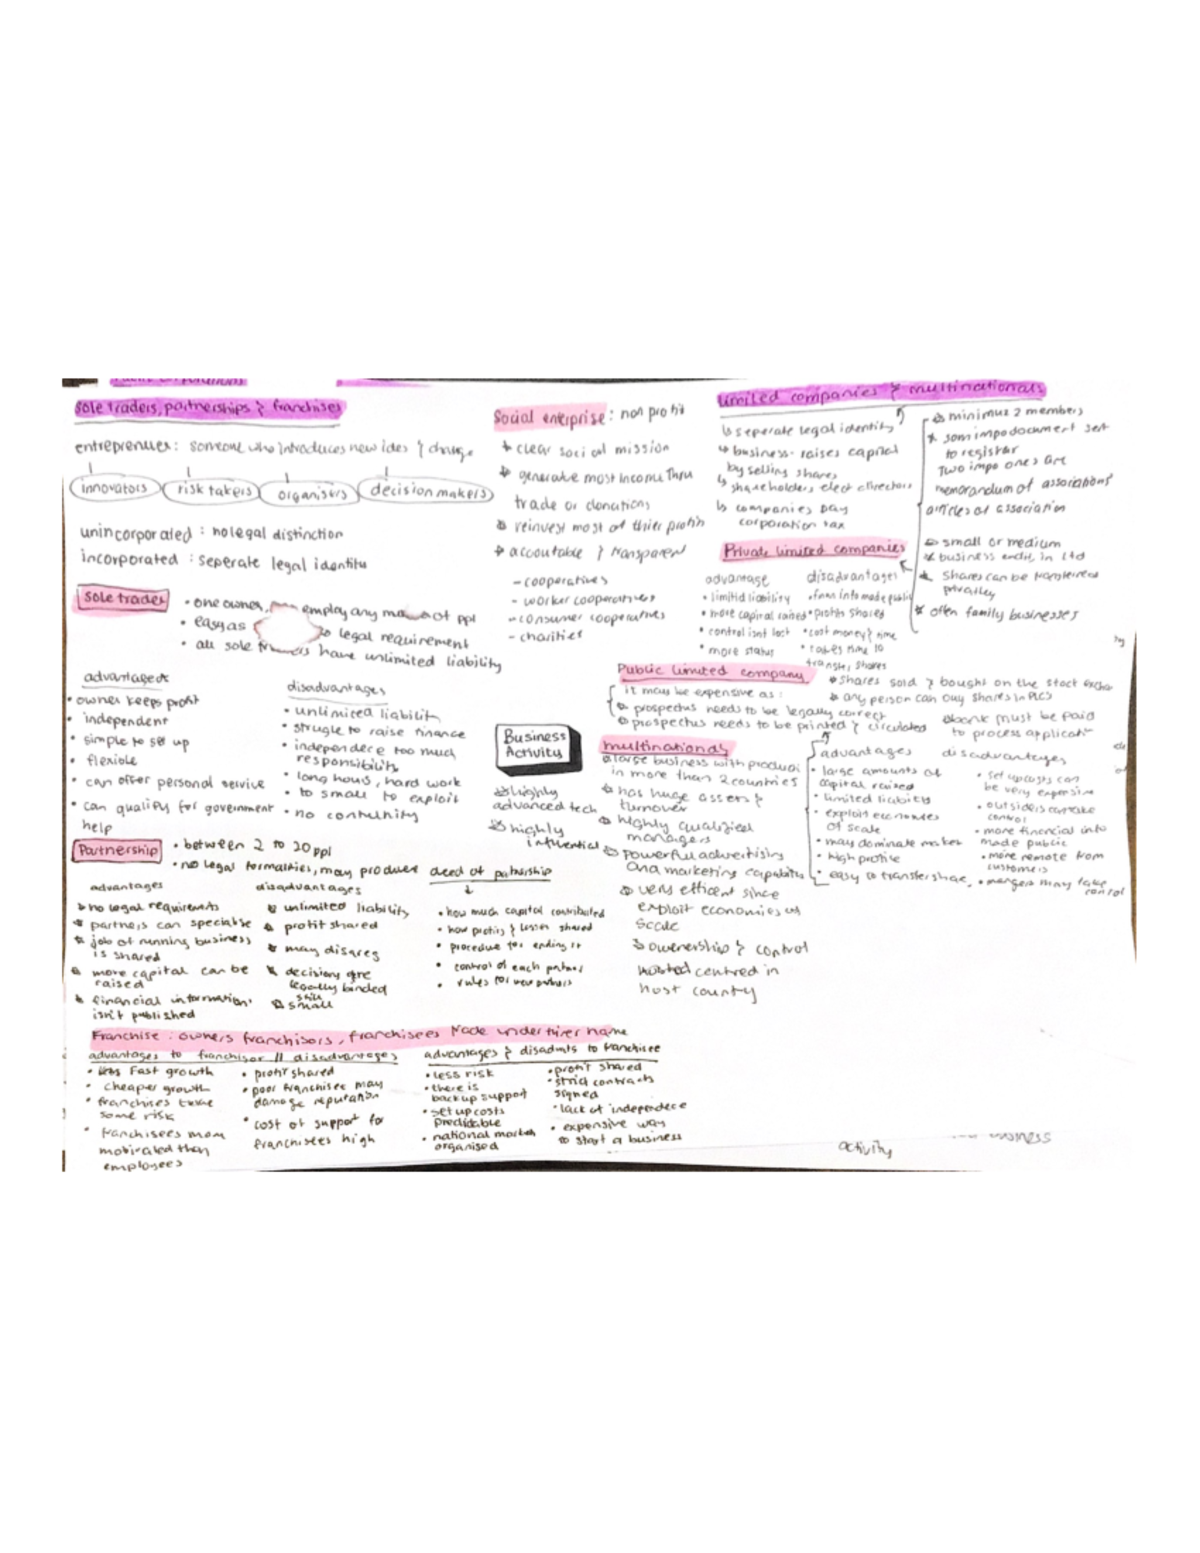 Sole traders, partnerships & franchises
entreprenuer: someone who introduces new ides & change
innovators risk takers organisers decision makers
unincorporated : no legal distinction
incorporated : seperate legal identity
Sole trader
• one owner, employ any of ppl
• easy as to legal requirement
• all sole traders have unlimited liability
advantages
• owner keeps profit
• independent
• simple to set up
• flexible
• can offer personal service
• can qualify for government
help
disadvantages
• unlimited liability
• strugle to raise finance
• independece too much
responsibility
• long hours, hard work
• to small to exploit
• no contunity
Partnership
• between 2 to 20 ppl
• no legal formalities, may produce deed of patnership
advantages
no legal requirements
partners can specialise
job of running business
is shared
more capital can be
raised
financial information
isn't published
disadvantages
unlimited liability
profit shared
may disagree
decision are
legally binded
still
small
• how much capital contributed
• how profits & losses shared
• procedure for ending it
• control of each partner
• rules for new partners
Franchise : owners franchisors, franchisees trade under their name
advantages to franchisor // disadvantages
• Fast growth
• cheaper growth
• franchises take
some risk
• franchisees more
motivated than
employees
• profit shared
• poor franchisee may
damage reputation
• cost of support for
franchisees high
advantages & disadvnts to franchisee
• less risk
• there is
backup support
• set up costs
predictable
• national market
organised
• profit shared
• strict contracts
signed
• lack of independece
• expensive way
to start a business
Social enterprise : non profit
clear social mission
generate most income thru
trade or donations
reinvest most of thier profits
accoutable & transparent
- cooperatives
- worker cooperatives
- consumer cooperatives
- charities
Business
Activity
highly
advanced tech
highly
influential
limited companies & multinationals
seperate legal identity
business raises capital
by selling shares
shareholders elect directors
companies pay
corporation tax
minimum 2 members
som impo document sent
to registrar
Two impo ones are
memorandum of associations
articles of association
small or medium
business ends in Ltd
shares can be transferred
privatley
often family businesses
Private limited companies
advantage
• limitid liability
• more capital raised
• control isnt lost
• more status
disadvantages
• finan info made public
• profits shared
• cost money & time
• takes time to
transfer shares
Public limited company
it may be expensive as :
prospectus needs to be legally correct
prospectus needs to be printed & circulated
shares sold & bought on the stock
any person can buy shares in PLCS
bank must be paid
to process
multinationals
large business with
in more than 2 countries
has huge assets &
turnover
highly qualified
managers
powerful advertisiny
and marketing
very efficent since
exploit economies of
scale
ownership & control
centred in
host country
advantages
• large amounts of
capital raised
• limited liability
• exploit economies
of scale
• may dominate market
• high profile
• easy to transfer
disadvantages
• set up costs can
be very expensive
• outsiders can take
control
• more financial info
made public
• more remote from
customers
• mergers may take
control
activity